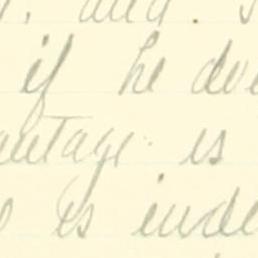 and
if he doe
antage is
is inde